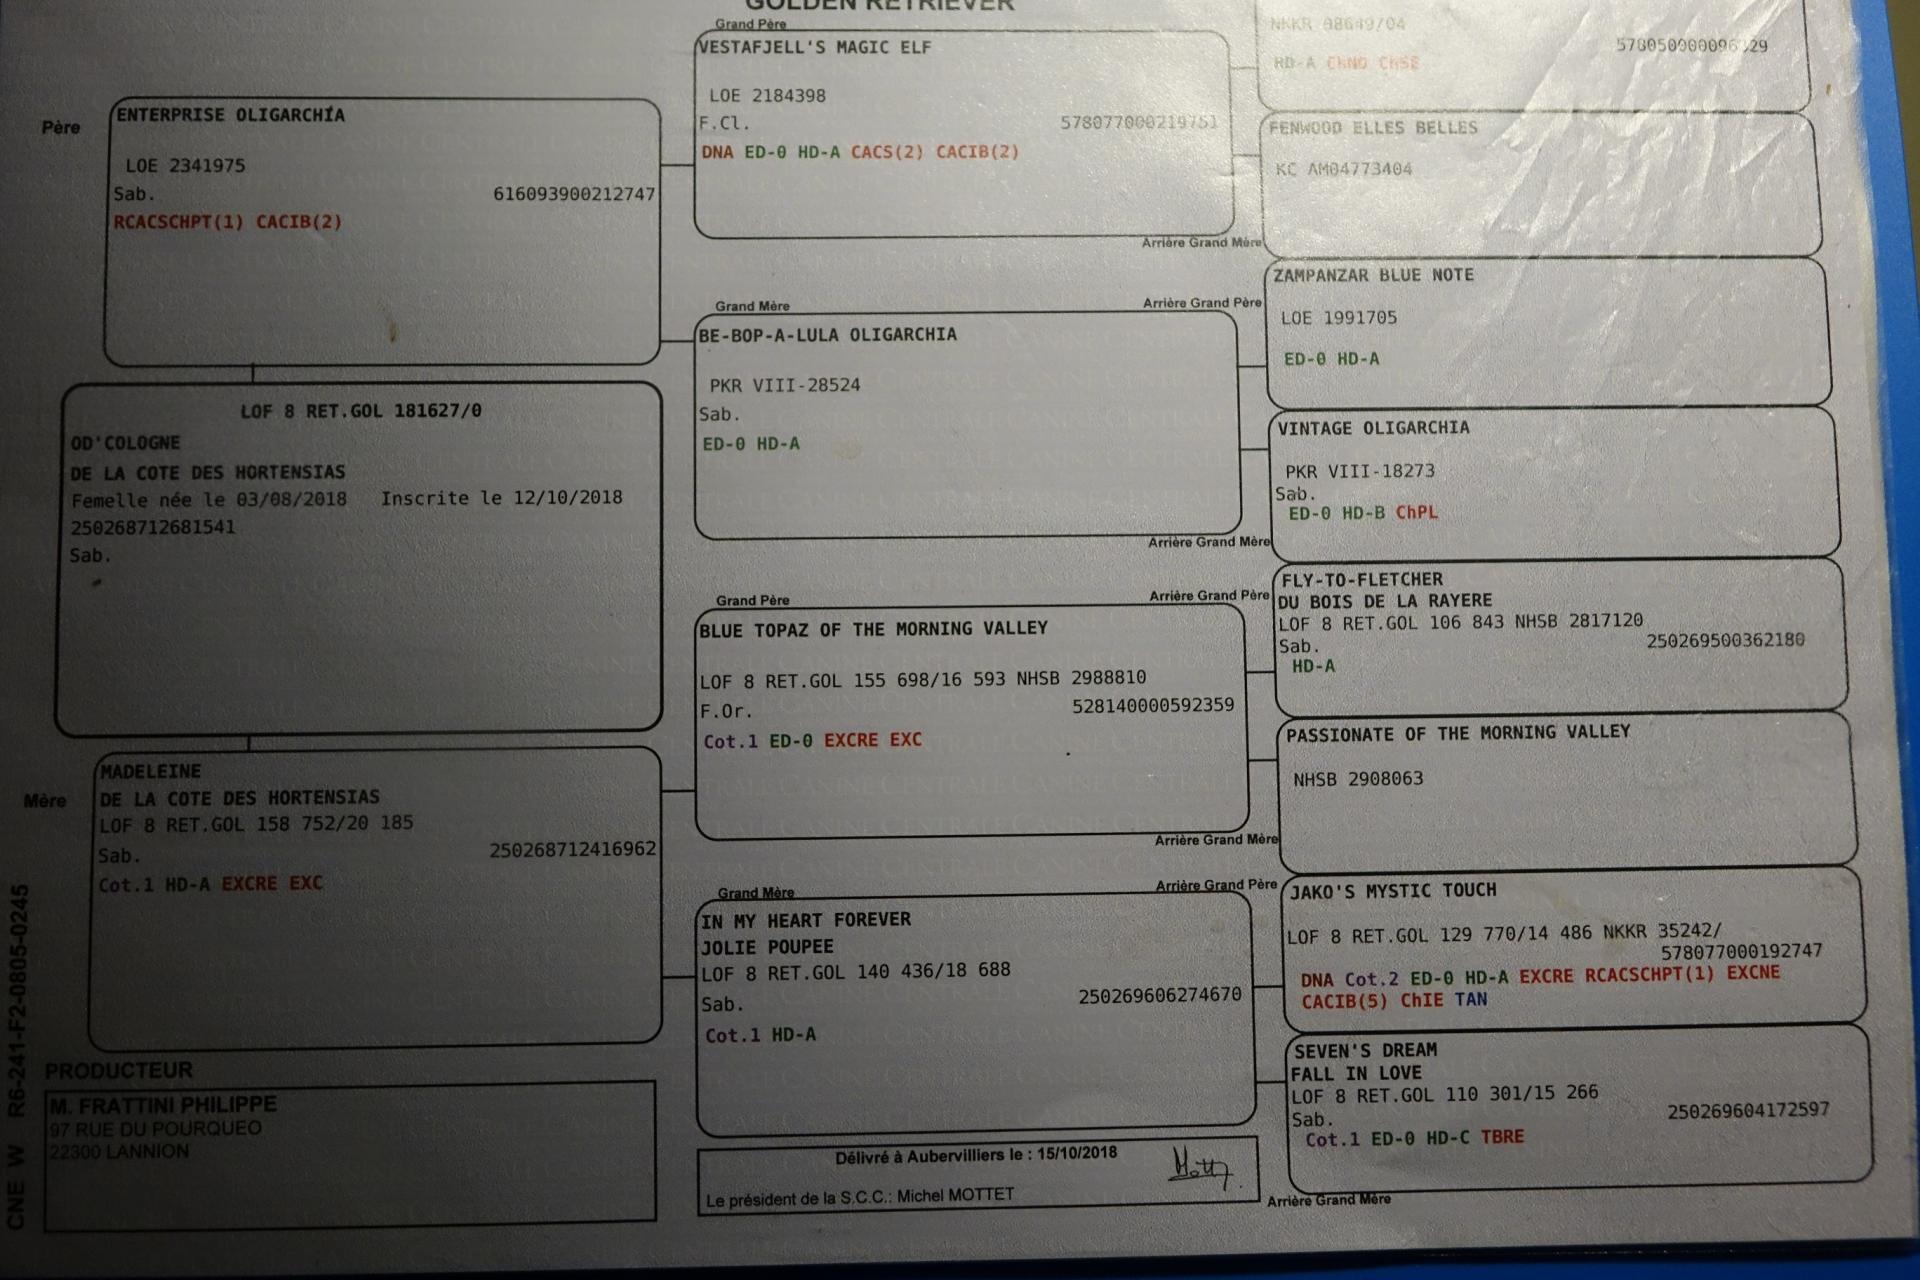 GOLDEN RETRIEVER
Père
ENTERPRISE OLIGARCHÍA
LOE 2341975
Sab.
616093900212747
RCACSCHPT(1) CACIB(2)
LOF 8 RET.GOL 181627/0
OD'COLOGNE
DE LA COTE DES HORTENSIAS
Femelle née le 03/08/2018 Inscrite le 12/10/2018
250268712681541
Sab.
Mère
MADELEINE
DE LA COTE DES HORTENSIAS
LOF 8 RET.GOL 158 752/20 185
Sab.
250268712416962
Cot.1 HD-A EXCRE EXC
CNE W R6-241-F2-0805-0245
PRODUCTEUR
M. FRATTINI PHILIPPE
97 RUE DU POURQUEO
22300 LANNION
Grand Père
VESTAFJELL'S MAGIC ELF
LOE 2184398
F.Cl.
578077000219751
DNA ED-0 HD-A CACS(2) CACIB(2)
Grand Mère
BE-BOP-A-LULA OLIGARCHIA
PKR VIII-28524
Sab.
ED-0 HD-A
Grand Père
BLUE TOPAZ OF THE MORNING VALLEY
LOF 8 RET.GOL 155 698/16 593 NHSB 2988810
F.Or.
528140000592359
Cot.1 ED-0 EXCRE EXC
Grand Mère
IN MY HEART FOREVER
JOLIE POUPEE
LOF 8 RET.GOL 140 436/18 688
Sab.
250269606274670
Cot.1 HD-A
Délivré à Aubervilliers le : 15/10/2018
Le président de la S.C.C.: Michel MOTTET
NKKR 08649/04
HD-A ChNO ChSE
FENWOOD ELLES BELLES
KC AM04773404
Arrière Grand Mère
Arrière Grand Père
ZAMPANZAR BLUE NOTE
LOE 1991705
ED-0 HD-A
VINTAGE OLIGARCHIA
PKR VIII-18273
Sab.
ED-0 HD-B ChPL
Arrière Grand Mère
Arrière Grand Père
FLY-TO-FLETCHER
DU BOIS DE LA RAYERE
LOF 8 RET.GOL 106 843 NHSB 2817120
Sab.
250269500362180
HD-A
PASSIONATE OF THE MORNING VALLEY
NHSB 2908063
Arrière Grand Mère
Arrière Grand Père
JAKO'S MYSTIC TOUCH
LOF 8 RET.GOL 129 770/14 486 NKKR 35242/
578077000192747
DNA Cot.2 ED-0 HD-A EXCRE RCACSCHPT(1) EXCNE
CACIB(5) ChIE TAN
SEVEN'S DREAM
FALL IN LOVE
LOF 8 RET.GOL 110 301/15 266
Sab.
250269604172597
Cot.1 ED-0 HD-C TBRE
Arrière Grand Mère